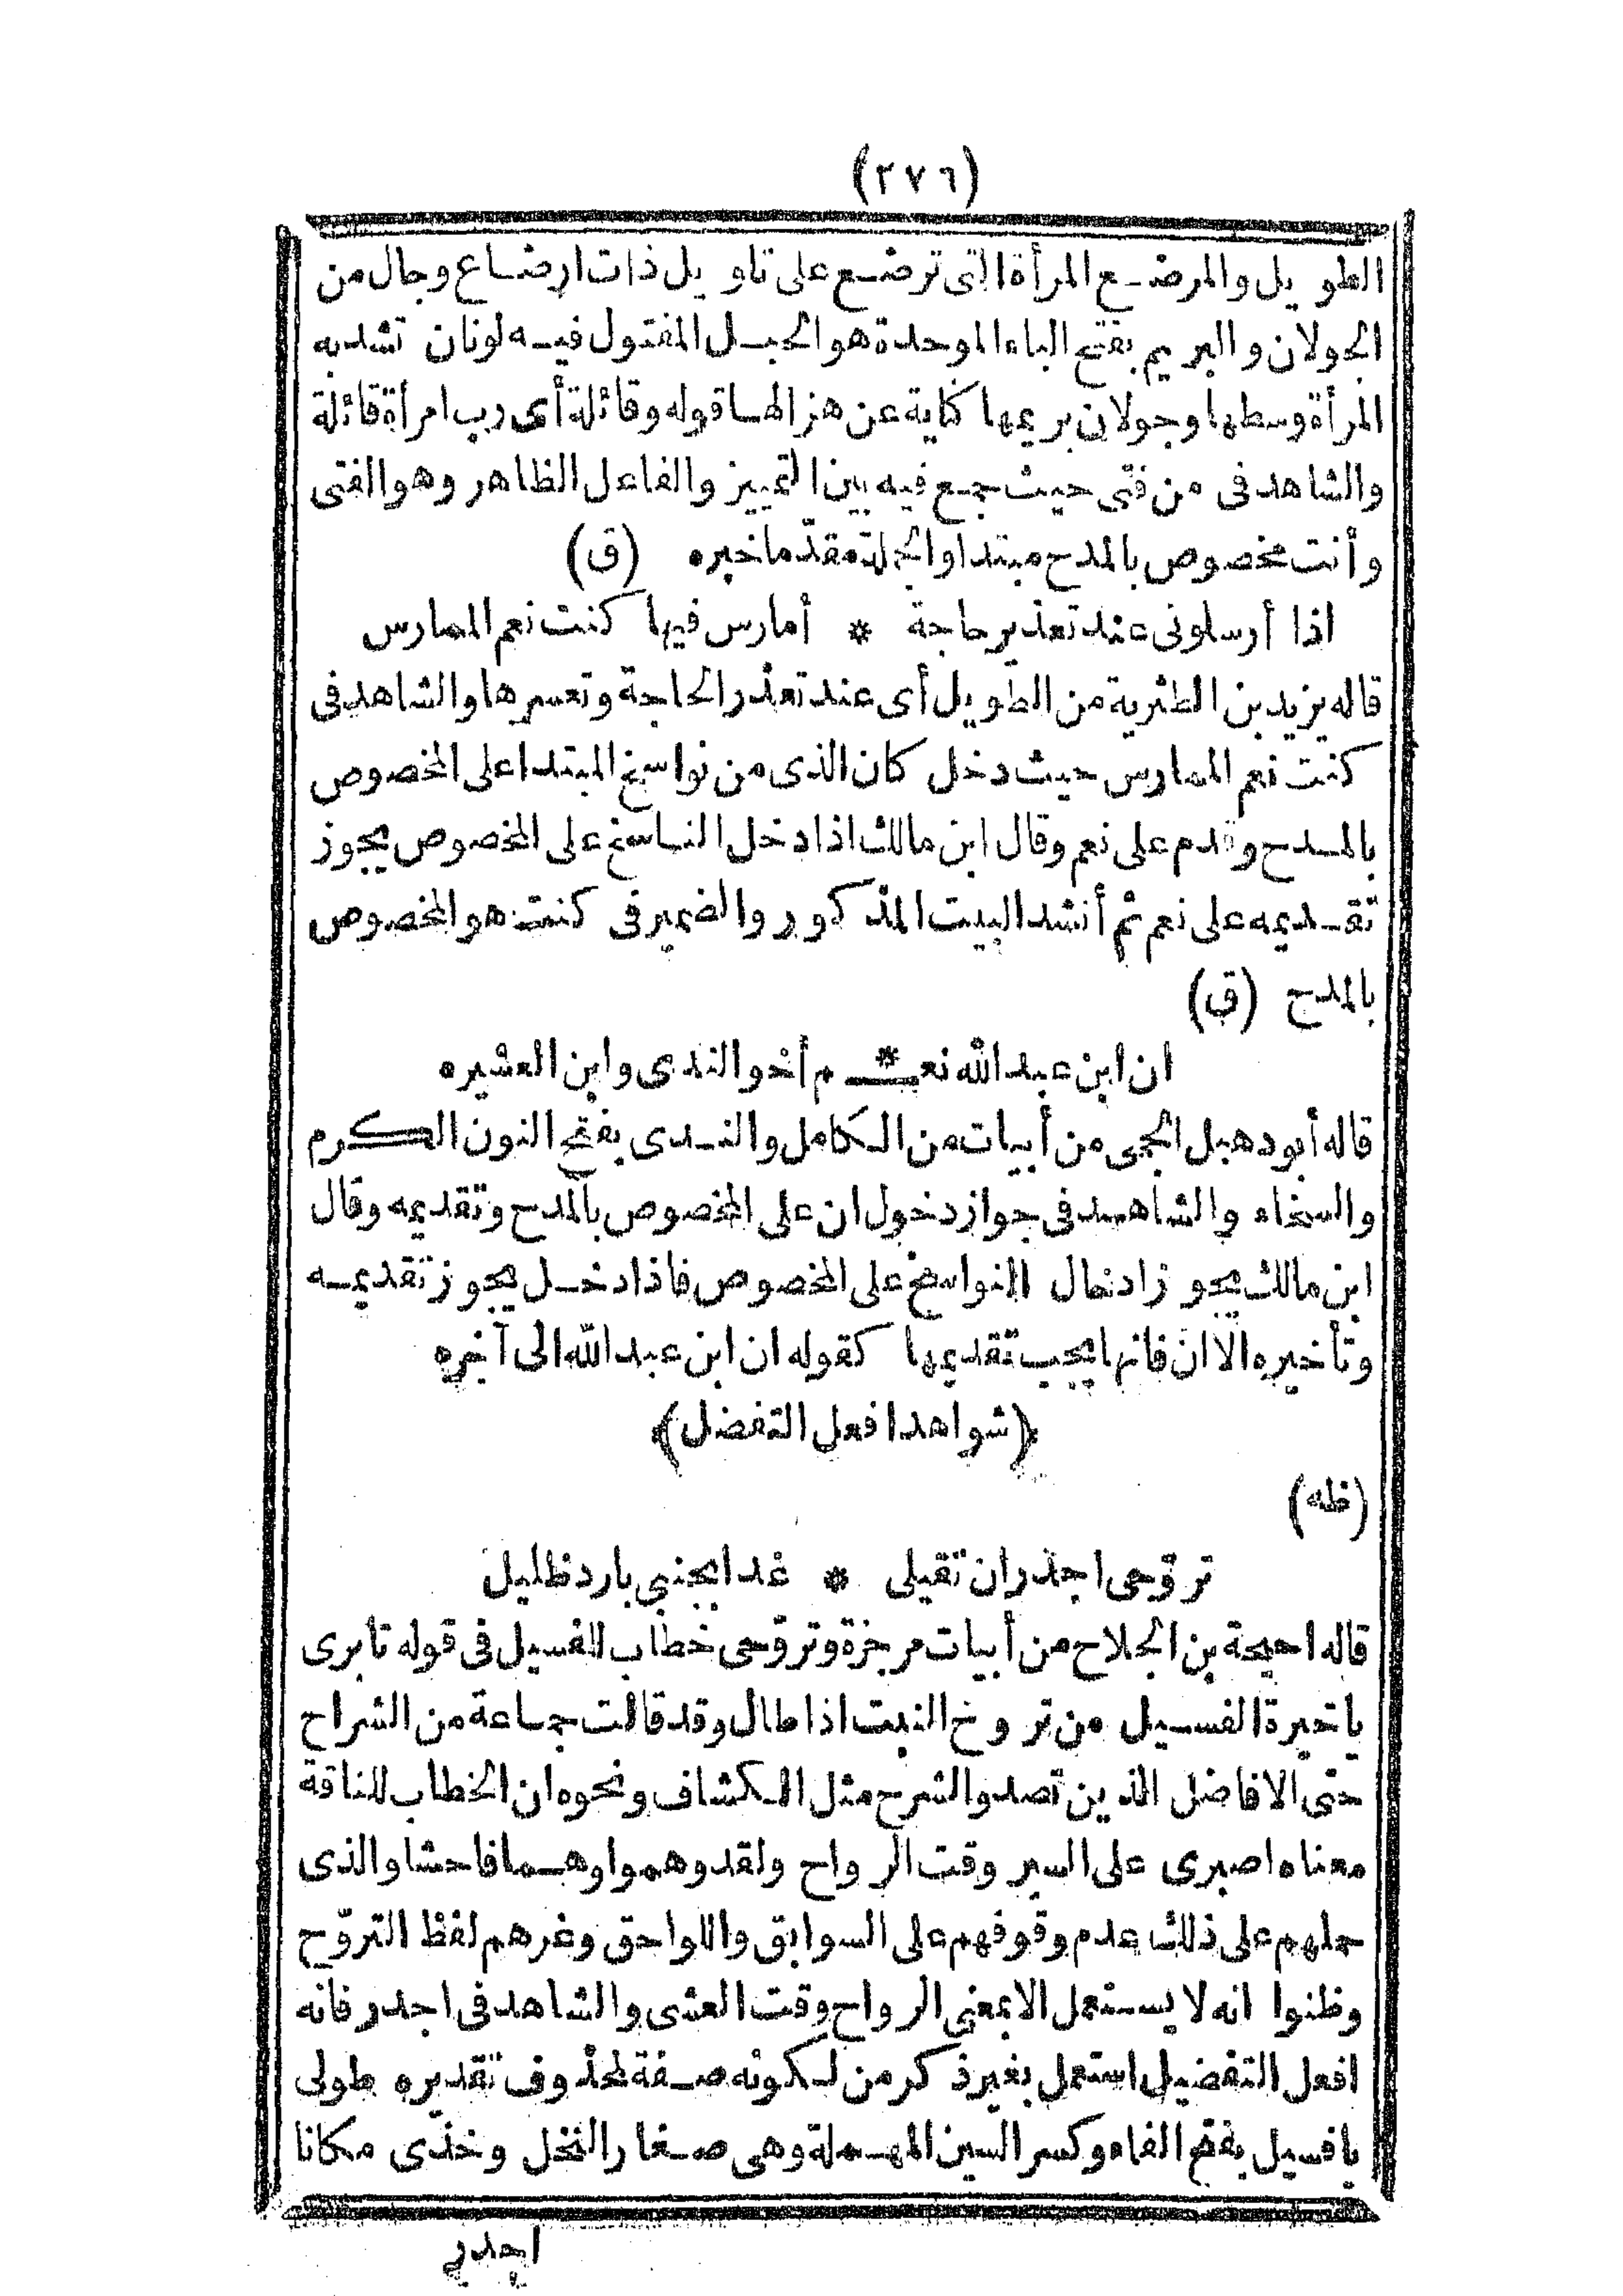 (٢٧٦)
الطويل والمرضع المرأة التى ترضع على تاويل ذات ارضاع وجال من
الجولان والبريم بفتح الباء الموحدة هو الحبل المفتول فيه لونان تشد به
المرأة وسطها وجولان بريمها كناية عن هزالها قوله وقائلة أى رب امرأة قائلة
والشاهد فى من فتى حيث جمع فيه بين التمييز والفاعل الظاهر وهو الفتى
وأنت مخصوص بالمدح مبتدا والجملة مقدّما خبره (ق)
اذا أرسلونى عند تعذير حاجة * أمارس فيها كنت نعم الممارس
قاله يزيد بن الطثرية من الطويل أى عند تعذر الحاجة وتعسرها والشاهد فى
كنت نعم الممارس حيث دخل كان الذى من نواسخ المبتدا على المخصوص
بالمدح وقدم على نعم وقال ابن مالك اذا دخل الناسخ على المخصوص يجوز
تقديمه على نعم ثم أنشد البيت المذكور والضمير فى كنت هو المخصوص
بالمدح (ق)
ان ابن عبد الله نعـ * م أخو الندى وابن العشيره
قاله أبو دهبل الجمحى من أبيات من الكامل والندى بفتح النون الكرم
والسخاء والشاهد فى جواز دخول ان على المخصوص بالمدح وتقديمه وقال
ابن مالك يجوز ادخال النواسخ على المخصوص فاذا دخل يجوز تقديمه
وتأخيره الا انّ فانها يجب تقديمها كقوله ان ابن عبد الله الى آخره
﴿شواهد افعل التفضل﴾
(ظه)
تروّحى اجذر ان تقيلى * غدا بجنبي بارد ظليل
قاله احيحة بن الجلاح من أبيات مرجزة وتروّحى خطاب للفسيل فى قوله تابرى
ياخيرة الفسيل من تروخ النبت اذا طال وقد قالت جماعة من الشراح
حتى الافاضل الذين تصدوا لشرح مثل الكشاف ونحوه ان الخطاب للناقة
معناه اصبرى على السير وقت الرواح ولقد وهموا وهما فاحشا والذى
حملهم على ذلك عدم وقوفهم على السوابق واللواحق وغرهم لفظ التروّح
وظنوا انه لا يستعمل الا بمعنى الرواح وقت العشى والشاهد فى اجدر فانه
افعل التفضيل استعمل بغير ذكر من لكونه صفة لمحذوف تقديره طولى
يا فسيل بفتح الفاء وكسر السين المهملة وهى صغار النخل وخذى مكانا
اجدر